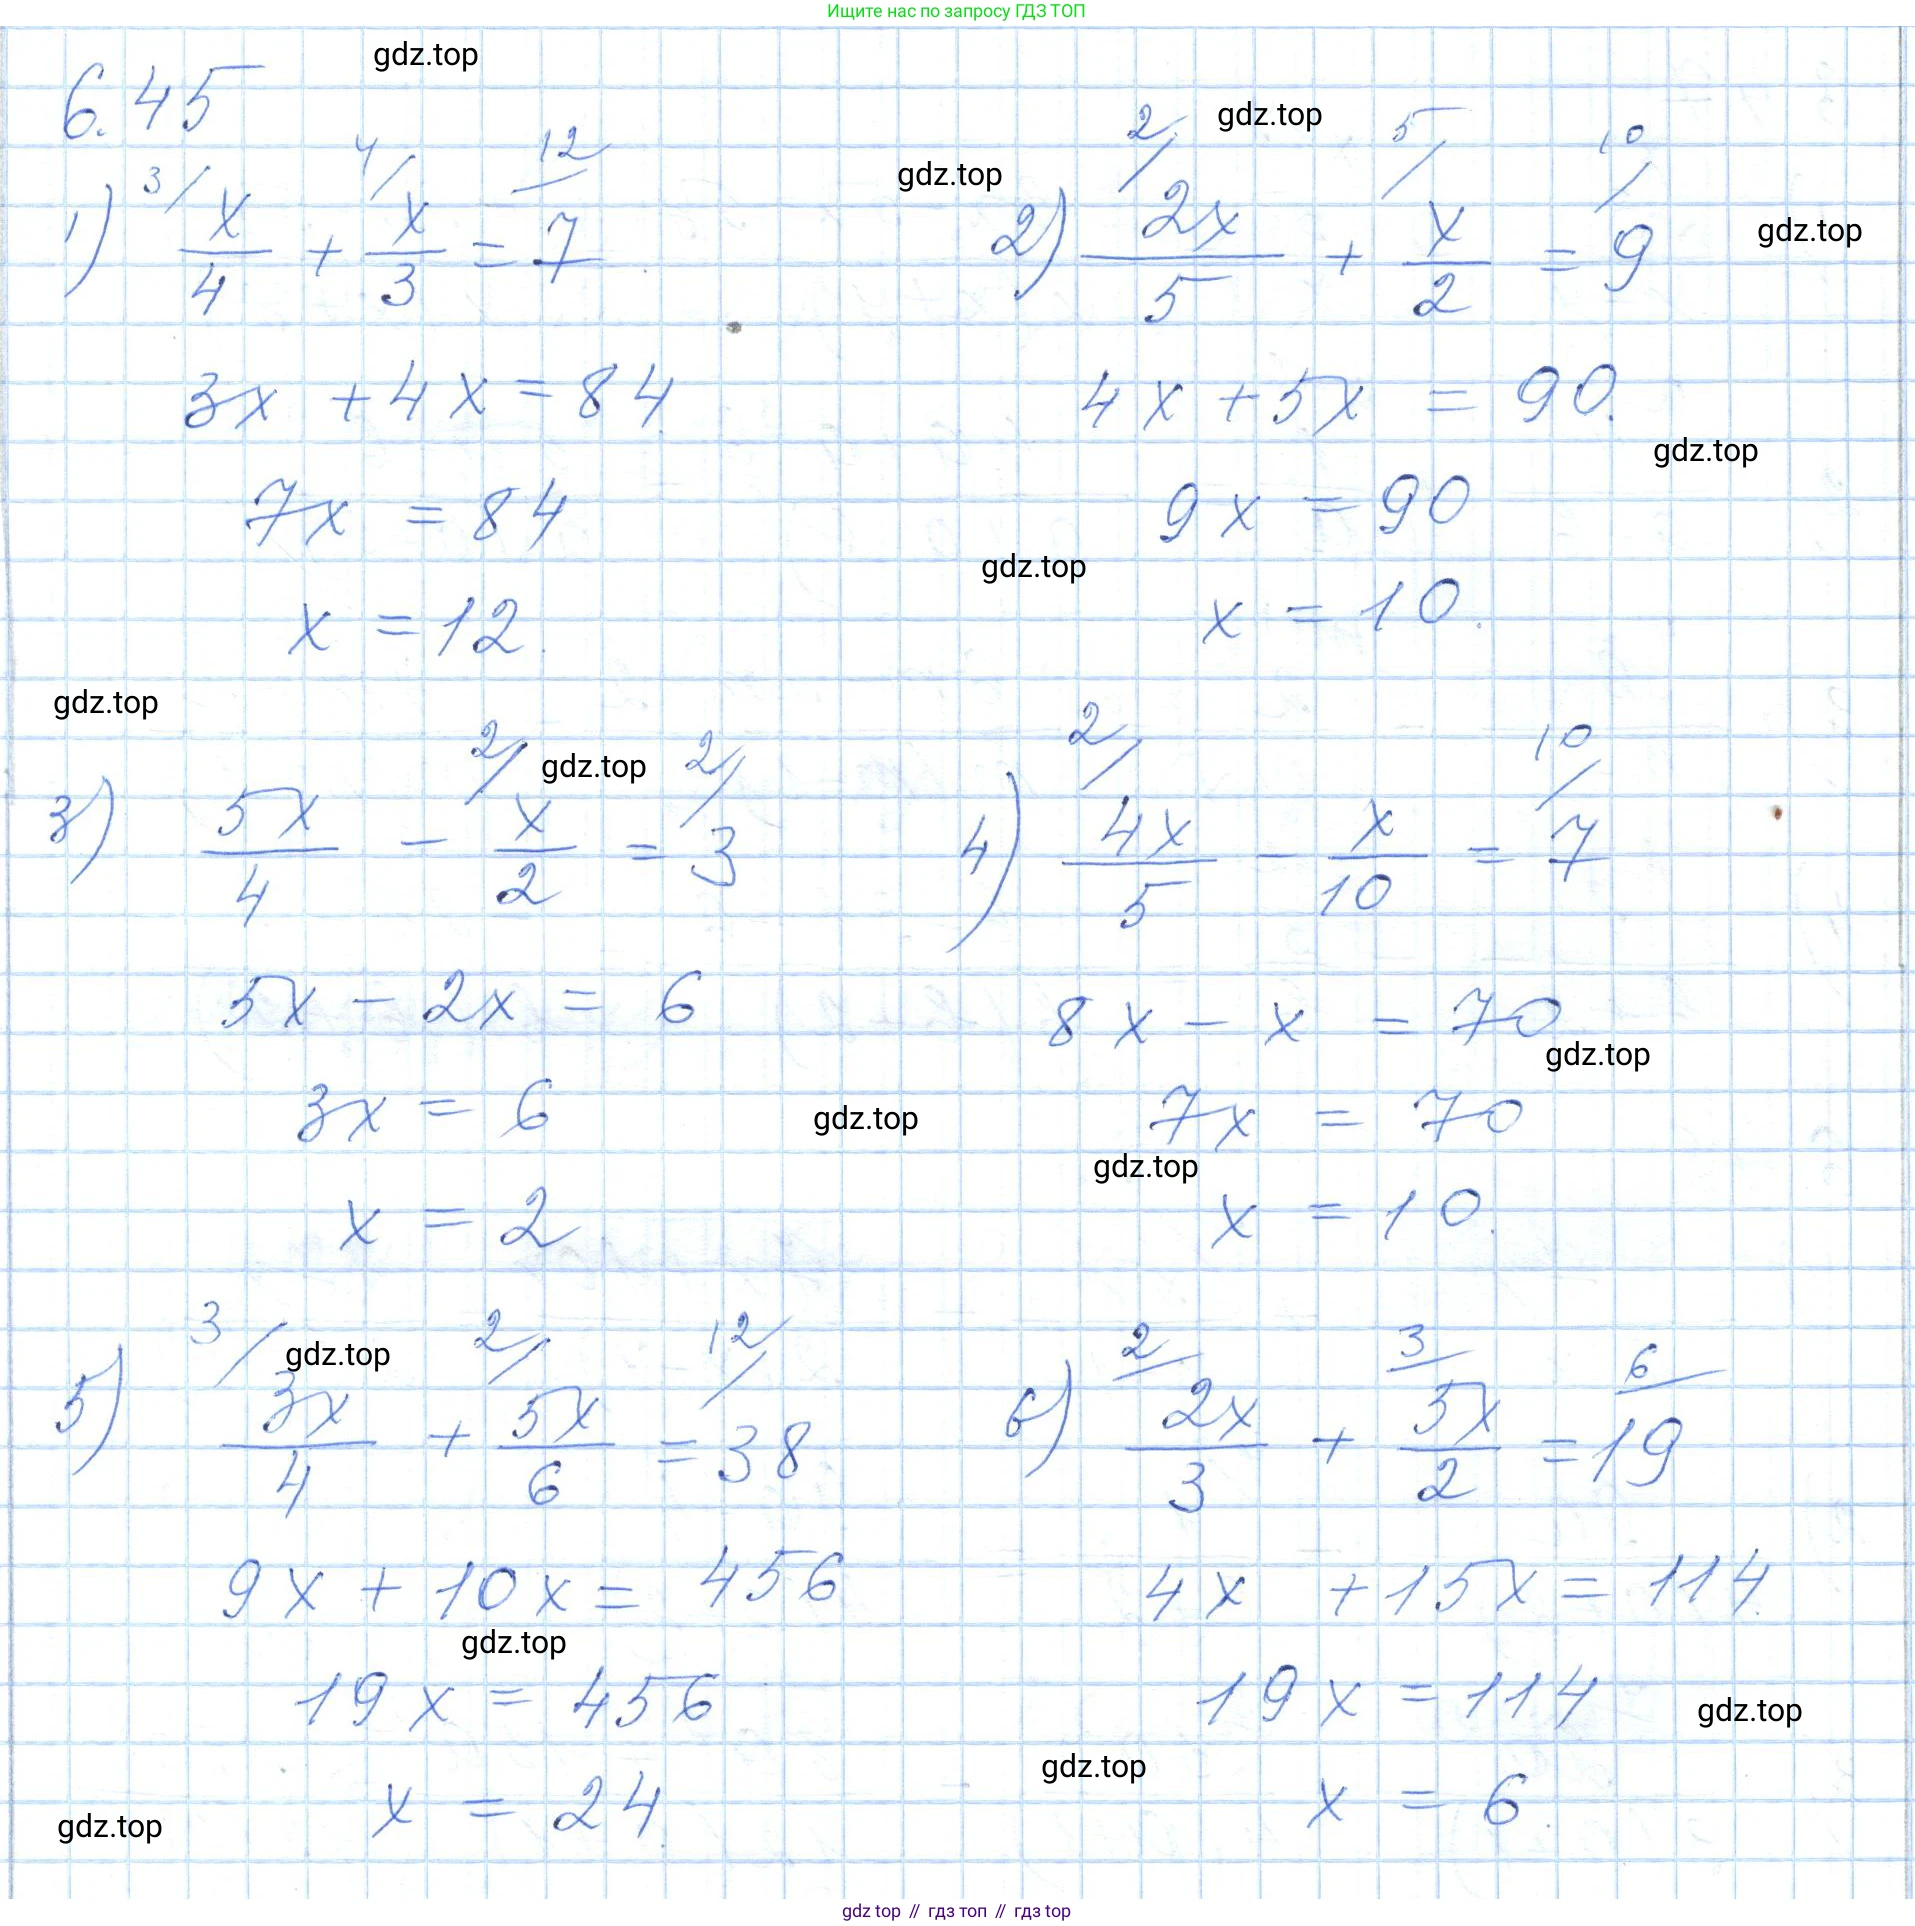 Ищите нас по запросу ГДЗ ТОП
gdz.top
6.45
gdz.top
gdz.top
gdz.top
1) 3/ x/4 + 4/ x/3 = 12/ 7
2) 2/ 2x/5 + 5/ x/2 = 10/ 9
3x + 4x = 84
4x + 5x = 90.
gdz.top
7x = 84
9x = 90
gdz.top
x = 12.
x = 10.
gdz.top
gdz.top
3) 5x/4 - 2/ x/2 = 2/ 3
4) 2/ 4x/5 - x/10 = 10/ 7
5x - 2x = 6
8x - x = 70
gdz.top
3x = 6
gdz.top
7x = 70
gdz.top
x = 2
x = 10.
gdz.top
5) 3/ 3x/4 + 2/ 5x/6 = 12/ 38
6) 2/ 2x/3 + 3/ 5x/2 = 6/ 19
9x + 10x = 456
4x + 15x = 114.
gdz.top
19x = 456
19x = 114
gdz.top
gdz.top
x = 24.
x = 6.
gdz.top
gdz top // гдз топ // gdz top